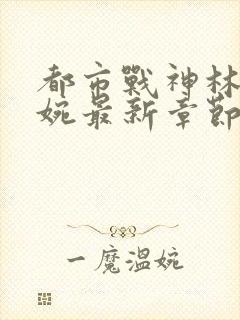 都市戰神林
婉最新章節
一魔溫婉